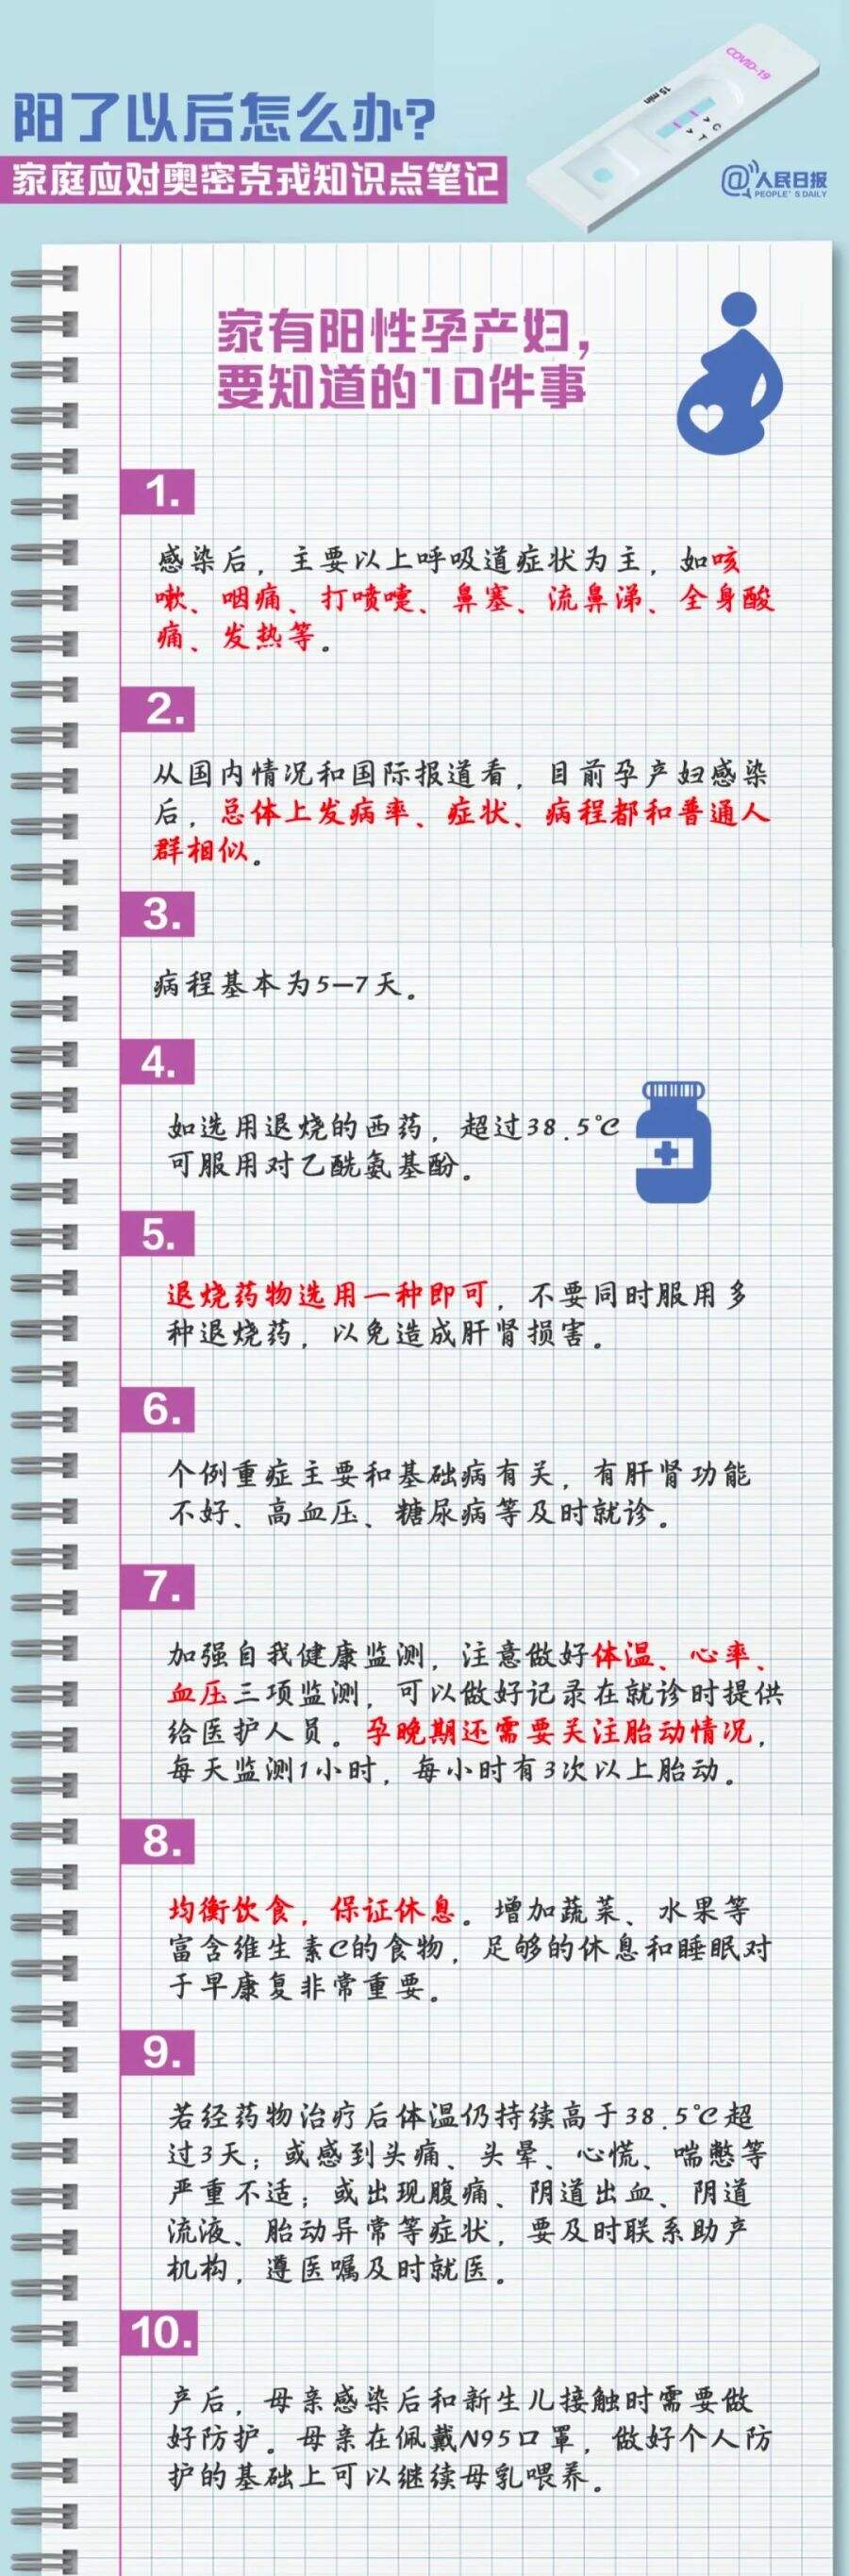 阳了以后怎么办?
家庭应对奥密克戎知识点笔记
COVID-19
15 min
C
T
@人民日报
PEOPLE'S DAILY
家有阳性孕产妇，
要知道的10件事
1.
感染后，主要以上呼吸道症状为主，如咳
嗽、咽痛、打喷嚏、鼻塞、流鼻涕、全身酸
痛、发热等。
2.
从国内情况和国际报道看，目前孕产妇感染
后，总体上发病率、症状、病程都和普通人
群相似。
3.
病程基本为5—7天。
4.
如选用退烧的西药，超过38.5℃
可服用对乙酰氨基酚。
5.
退烧药物选用一种即可，不要同时服用多
种退烧药，以免造成肝肾损害。
6.
个例重症主要和基础病有关，有肝肾功能
不好、高血压、糖尿病等及时就诊。
7.
加强自我健康监测，注意做好体温、心率、
血压三项监测，可以做好记录在就诊时提供
给医护人员。孕晚期还需要关注胎动情况，
每天监测1小时，每小时有3次以上胎动。
8.
均衡饮食，保证休息。增加蔬菜、水果等
富含维生素C的食物，足够的休息和睡眠对
于早康复非常重要。
9.
若经药物治疗后体温仍持续高于38.5℃超
过3天；或感到头痛、头晕、心慌、喘憋等
严重不适；或出现腹痛、阴道出血、阴道
流液、胎动异常等症状，要及时联系助产
机构，遵医嘱及时就医。
10.
产后，母亲感染后和新生儿接触时需要做
好防护。母亲在佩戴N95口罩，做好个人防
护的基础上可以继续母乳喂养。